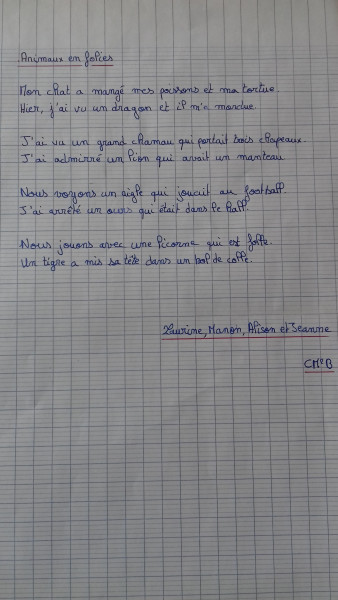 Animaux en folies
Mon chat a mangé mes poissons et ma tortue.
Hier, j'ai vu un dragon et il m'a mordue.
J'ai vu un grand chamau qui portait trois chapeaux.
J'ai admirré un lion qui avait un manteau
Nous voyons un aigle qui jouait au football.
J'ai arrêté un ours qui était dans le hall.
Nous jouons avec une licorne qui est folle.
Un tigre a mis sa tête dans un bol de colle.
Laurine, Manon, Alison et Jeanne